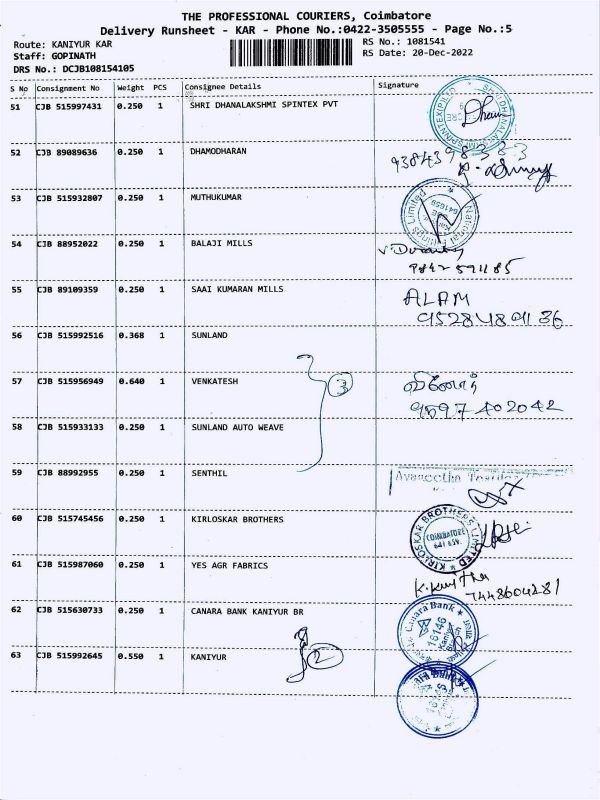 THE PROFESSIONAL COURIERS, Coimbatore
Delivery Runsheet - KAR - Phone No.:0422-3505555 - Page No.:5
Route: KANIYUR KAR
RS No.: 1081541
Staff: GOPINATH
RS Date: 20-Dec-2022
DRS No.: DCJB108154105
S No Consignment No Weight PCS Consignee Details Signature
51 CJB 515997431 0.250 1 SHRI DHANALAKSHMI SPINTEX PVT
52 CJB 89089636 0.250 1 DHAMODHARAN
9384398383
53 CJB 515932807 0.250 1 MUTHUKUMAR
National Fittings Limited
54 CJB 88952022 0.250 1 BALAJI MILLS
9842591185
55 CJB 89109359 0.250 1 SAAI KUMARAN MILLS ALAM
9528489136
56 CJB 515992516 0.368 1 SUNLAND
57 CJB 515956949 0.640 1 VENKATESH 3
9597402042
58 CJB 515933133 0.250 1 SUNLAND AUTO WEAVE
59 CJB 88992955 0.250 1 SENTHIL
60 CJB 515745456 0.250 1 KIRLOSKAR BROTHERS
KIRLOSKAR BROTHERS LIMITED
COIMBATORE
641 659
61 CJB 515987060 0.250 1 YES AGR FABRICS K. Kavitha
7448604281
62 CJB 515630733 0.250 1 CANARA BANK KANIYUR BR
Canara Bank
16146
63 CJB 515992645 0.550 1 KANIYUR 2